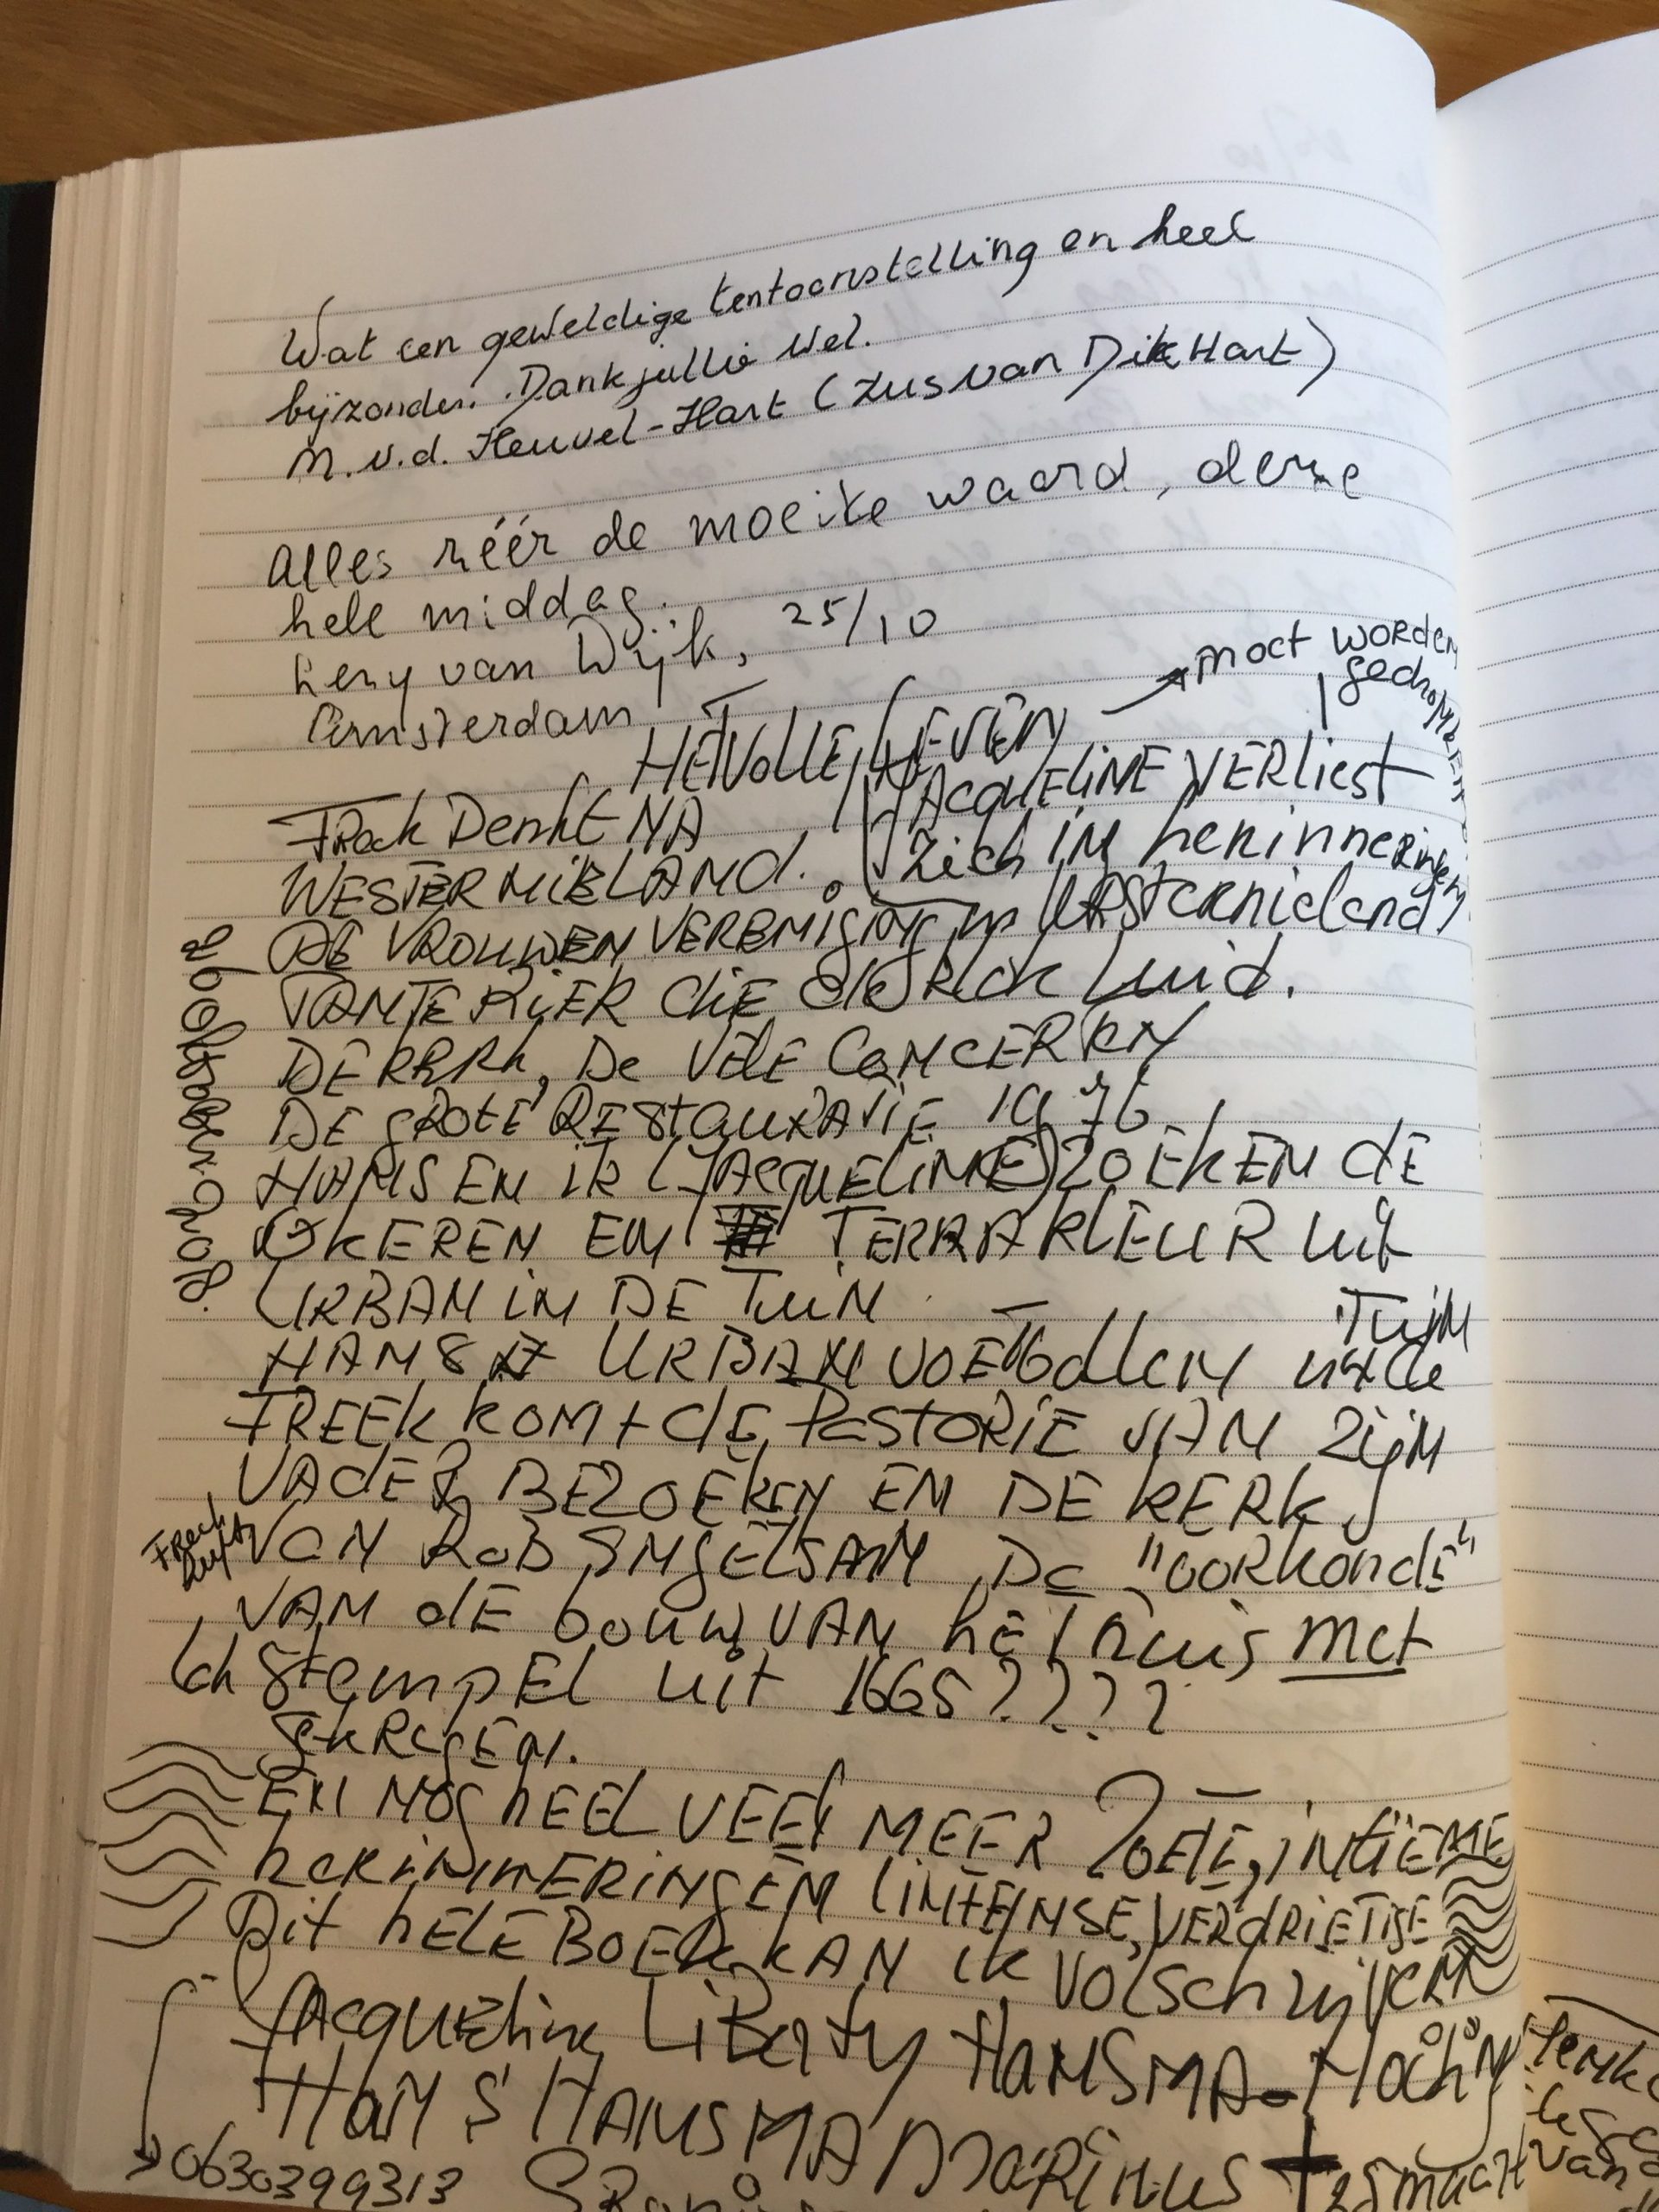 Wat een geweldige tentoonstelling en heel
bijzonder. Dank jullie wel.
M.v.d. Heuvel-Hart (zus van Dik Hart)
Alles zéér de moeite waard, deze
hele middag.
Leny van Dijk, 25/10
Amsterdam
moet worden
HET VOLLE LEVEN
JACQUELINE VERLIEST
Freek Denkt NA
zich in herinneringen
WESTERNIELAND.
DE VROUWENVERENIGING in Westernieland
TANTE RIER die de klok luid.
DE KERK, De VELE CONCERREN
DE GROTE RESTAURATIE 1976
HANS EN IK (JACQUELINE) ZOEKEN DE
OKEREN EN TERRAKLEUR uit
URBAN IN DE TUIN
TUIN
HANS URBAN VOETBALLEN
FREEK KOMT DE PASTORIE VAN ZIJN
VADER BEZOEKEN EN DE KERK
Freek
VAN ROB De "OORKONDE"
VAN dE bouw VAN het huis met
stempel uit 1665????
gekregen.
EN NOG hEEL VEEL MEER ZOETE, INTIEME
herinneringen (INTENSE, VERDRIETIGE
Dit hELE BOEK KAN IK VOLSchrijven
JACQUELINE LiBerty HANSMA-
HANS HANSMA MARINUS
0630399313